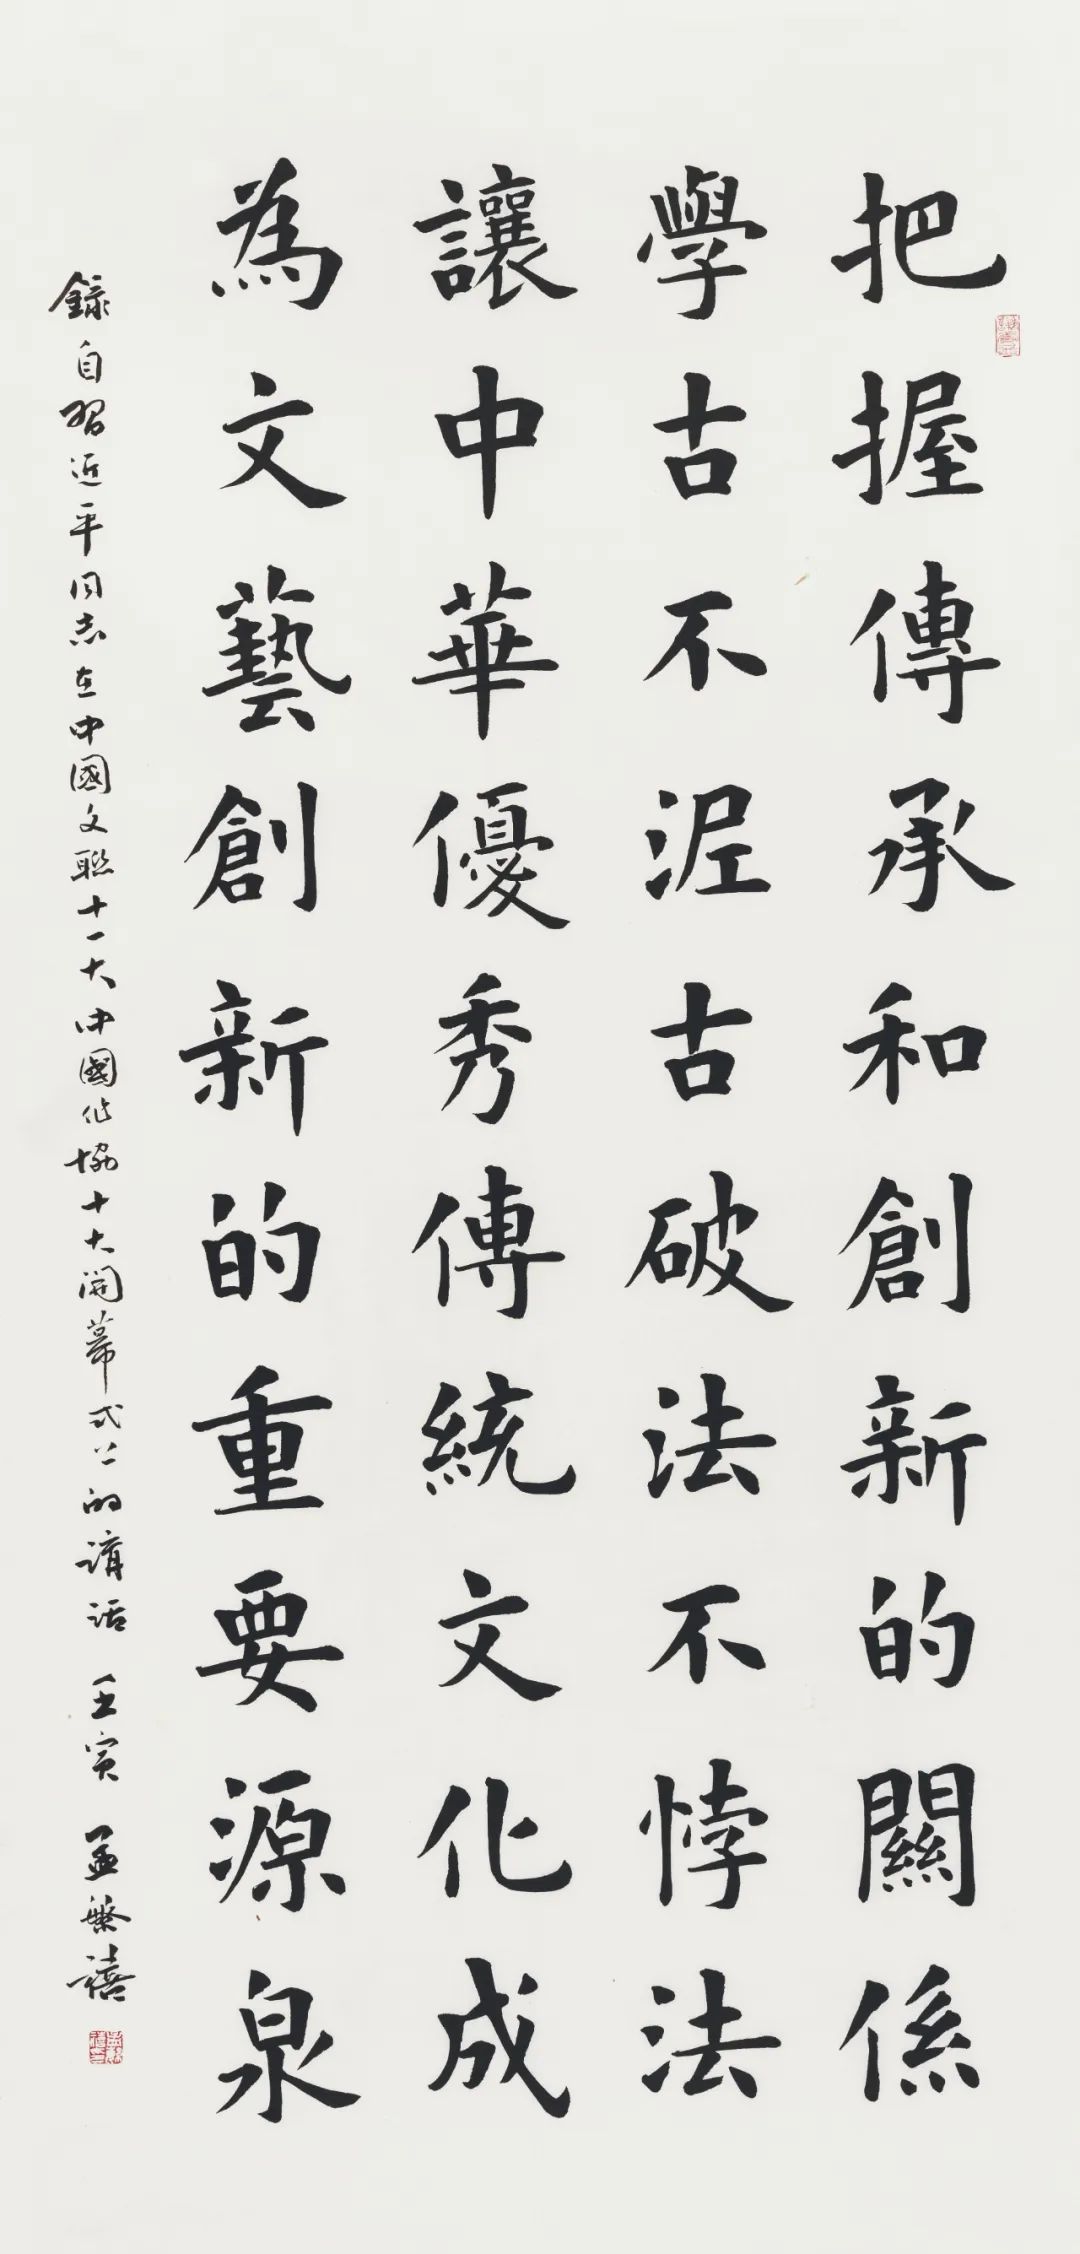 把握傳承和創新的關係
學古不泥古破法不悖法
讓中華優秀傳統文化成
為文藝創新的重要源泉
錄自習近平同志在中國文聯十一大中國作協十大開幕式上的講話 壬寅 孟繁禧